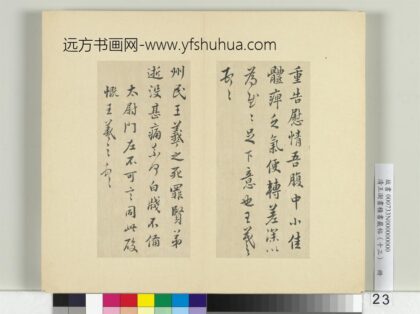 远方书画网-www.yfshuhua.com
重告慰情吾腹中小佳
體痺乏氣便轉差深以
為慰
足下意也王羲
州民王羲之死罪賢弟
逝没甚痛奈何白牋不備
太尉門左不可言同此破
懷王羲之
23